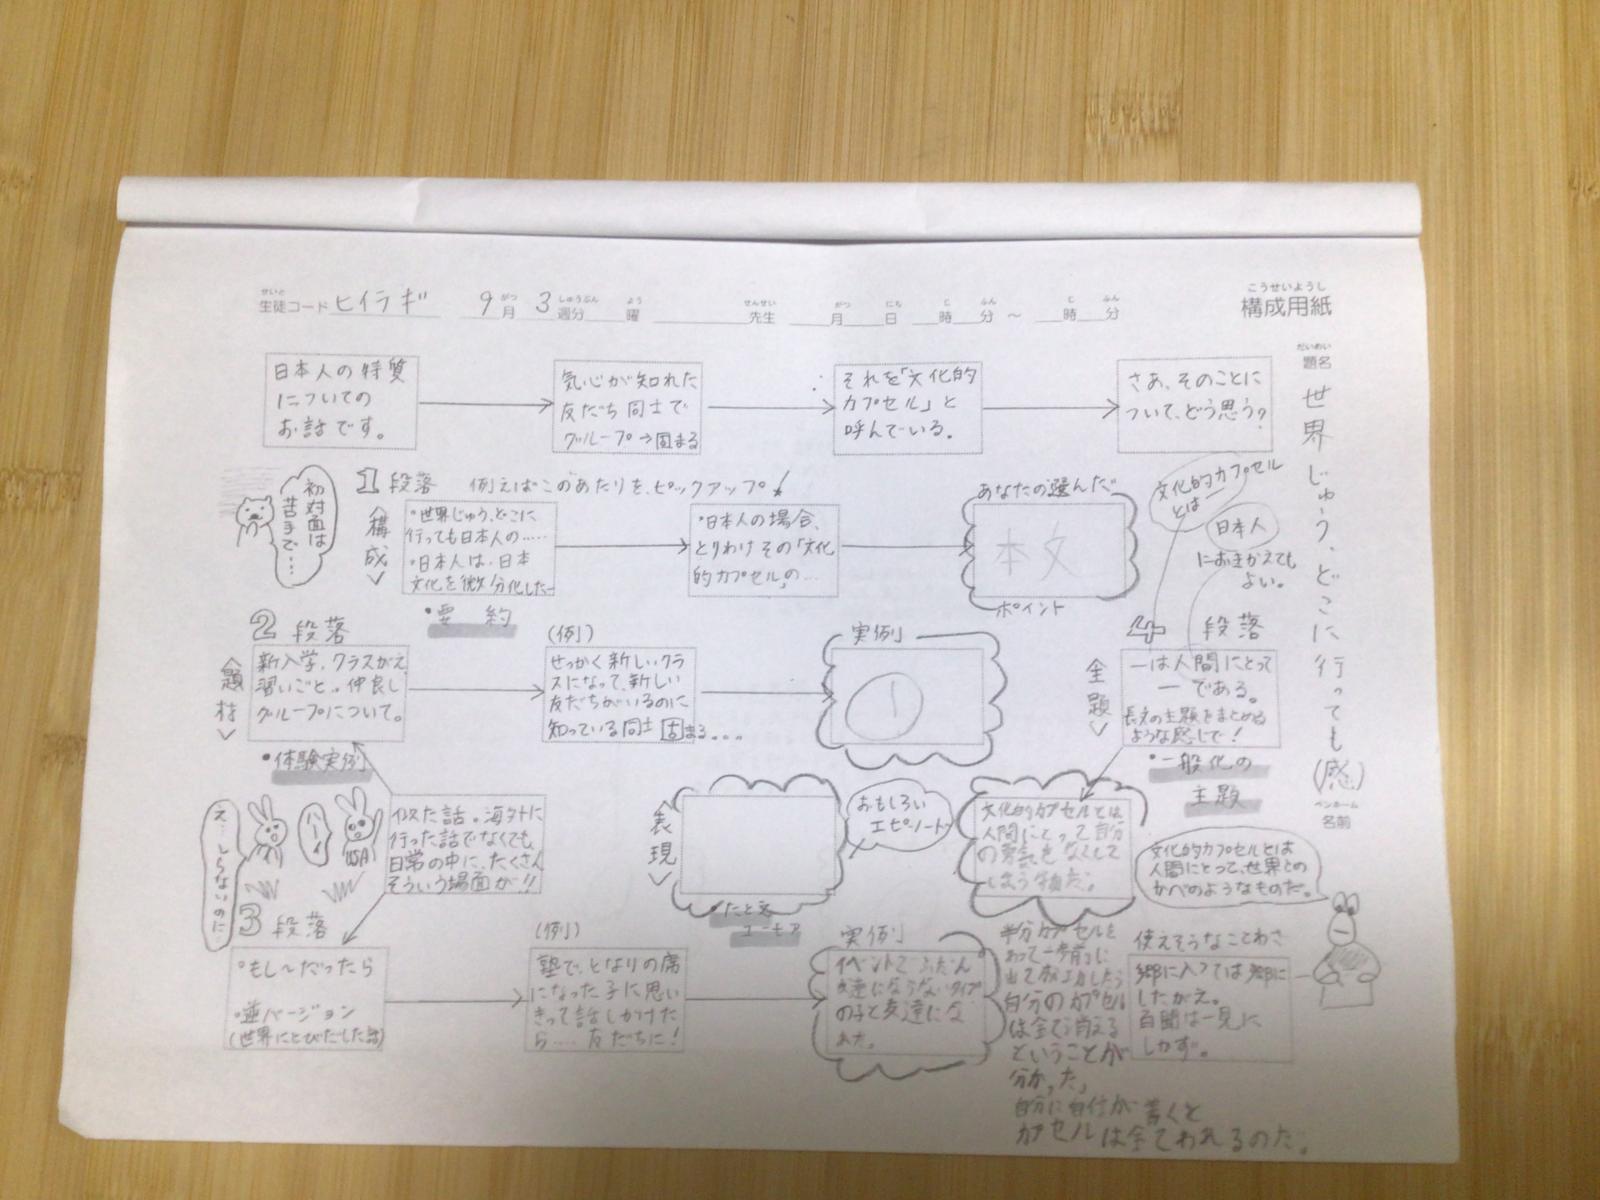 せいと
生徒コード ヒイラギ 9月 3週分 曜 先生 月 日 時 分 ～ 時 分
こうせいようし
構成用紙
だいめい
題名
世界じゅう、どこに行っても(感)
ペンネーム
名前
日本人の特質
についての
お話です。
気心が知れた
友だち同士で
グループ→固まる
それを「文化的
カプセル」と
呼んでいる。
さあ、そのことに
ついて、どう思う?
初対面は
苦手で…
1 段落 例えばこのあたりを、ピックアップ!
〈構成〉
・世界じゅう、どこに
行っても日本人の……
・日本人は、日本
文化を微分化した…
・要約
・日本人の場合、
とりわけその「文化
的カプセル」の…
あなたの選んだ
本文
ポイント
文化的カプセル
とは
日本人
におきかえても
よい。
2 段落
〈題材〉
新入学、クラスがえ
習いごと。仲良し
グループについて。
・体験実例
(例)
せっかく新しいクラ
スになって、新しい
友だちがいるのに
知っている同士固まる...
実例
1
4 段落
〈主題〉
―は人間にとって
―である。
長文の主題をまとめる
ような感じで!
・一般化の
主題
え…しらないのに…
ハーイ
USA
似た話。海外に
行った話でなくても、
日常の中に、たくさん
そういう場面が!!
〈表現〉
おもしろい
エピソード
・たとえ
ユーモア
文化的カプセルとは、
人間にとって自分
の勇気をなくして
しまう物だ。
文化的カプセルとは
人間にとって、世界との
かべのようなものだ。
3 段落
・もし～だったら
・逆バージョン
(世界にとびだした話)
(例)
塾で、となりの席
になった子に思い
きって話しかけた
ら…. 友だちに!
実例
イベントでふだん
友達にならないタイプ
の子と友達にな
った。
半分カプセルを
わって一歩前に
出て
自分のカプセル
は全て消える
ということが
分かった」
自分に自信が 着くと
カプセルは全てわれるのだ。
使えそうなことわざ
郷に入っては郷に
したがえ。
百聞は一見に
しかず。